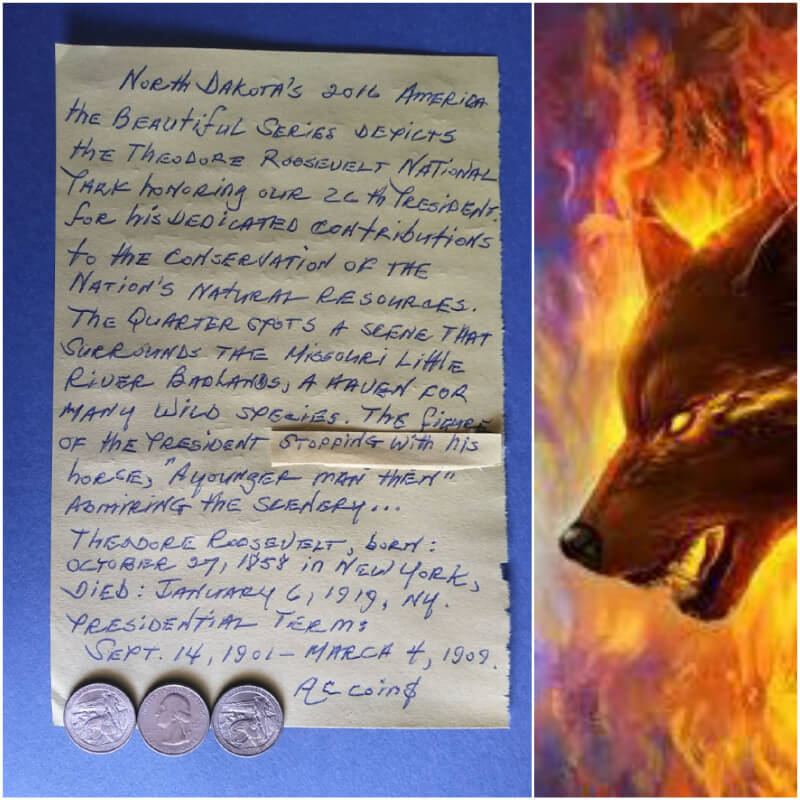 North Dakota's 2016 America
the Beautiful Series depicts
the Theodore Roosevelt National
Park honoring our 26th President.
for his dedicated contributions
to the conservation of the
Nation's natural resources.
The Quarter spots a scene that
surrounds the Missouri Little
River Badlands, a haven for
many wild species. The figure
of the President stopping with his
horse, "A younger man then"
admiring the scenery...
Theodore Roosevelt, born:
October 27, 1858 in New York,
Died: January 6, 1919, NY.
Presidential Term:
Sept. 14, 1901 – March 4, 1909.